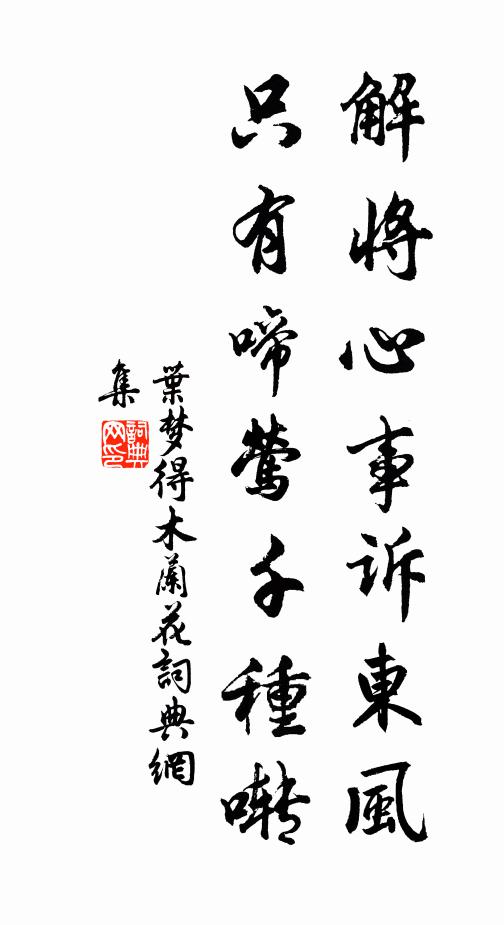 解將心事訴東風
只有啼鶯千種囀
葉梦得木蘭花詞典網
集
詞典
网印